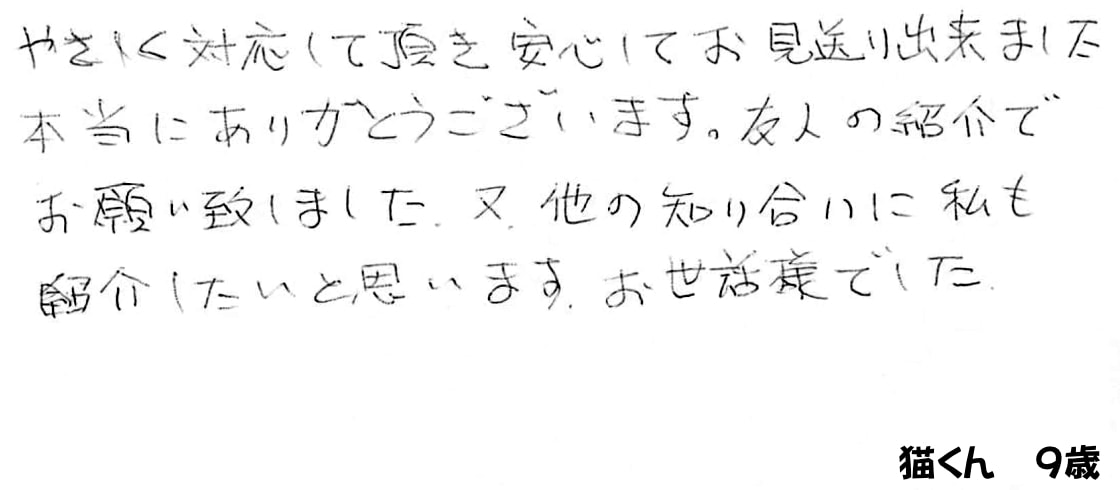 やさしく対応して頂き安心してお見送り出来ました
本当にありがとうございます。友人の紹介で
お願い致しました.又.他の知り合いに私も
紹介したいと思います.お世話様でした.
猫くん 9歳